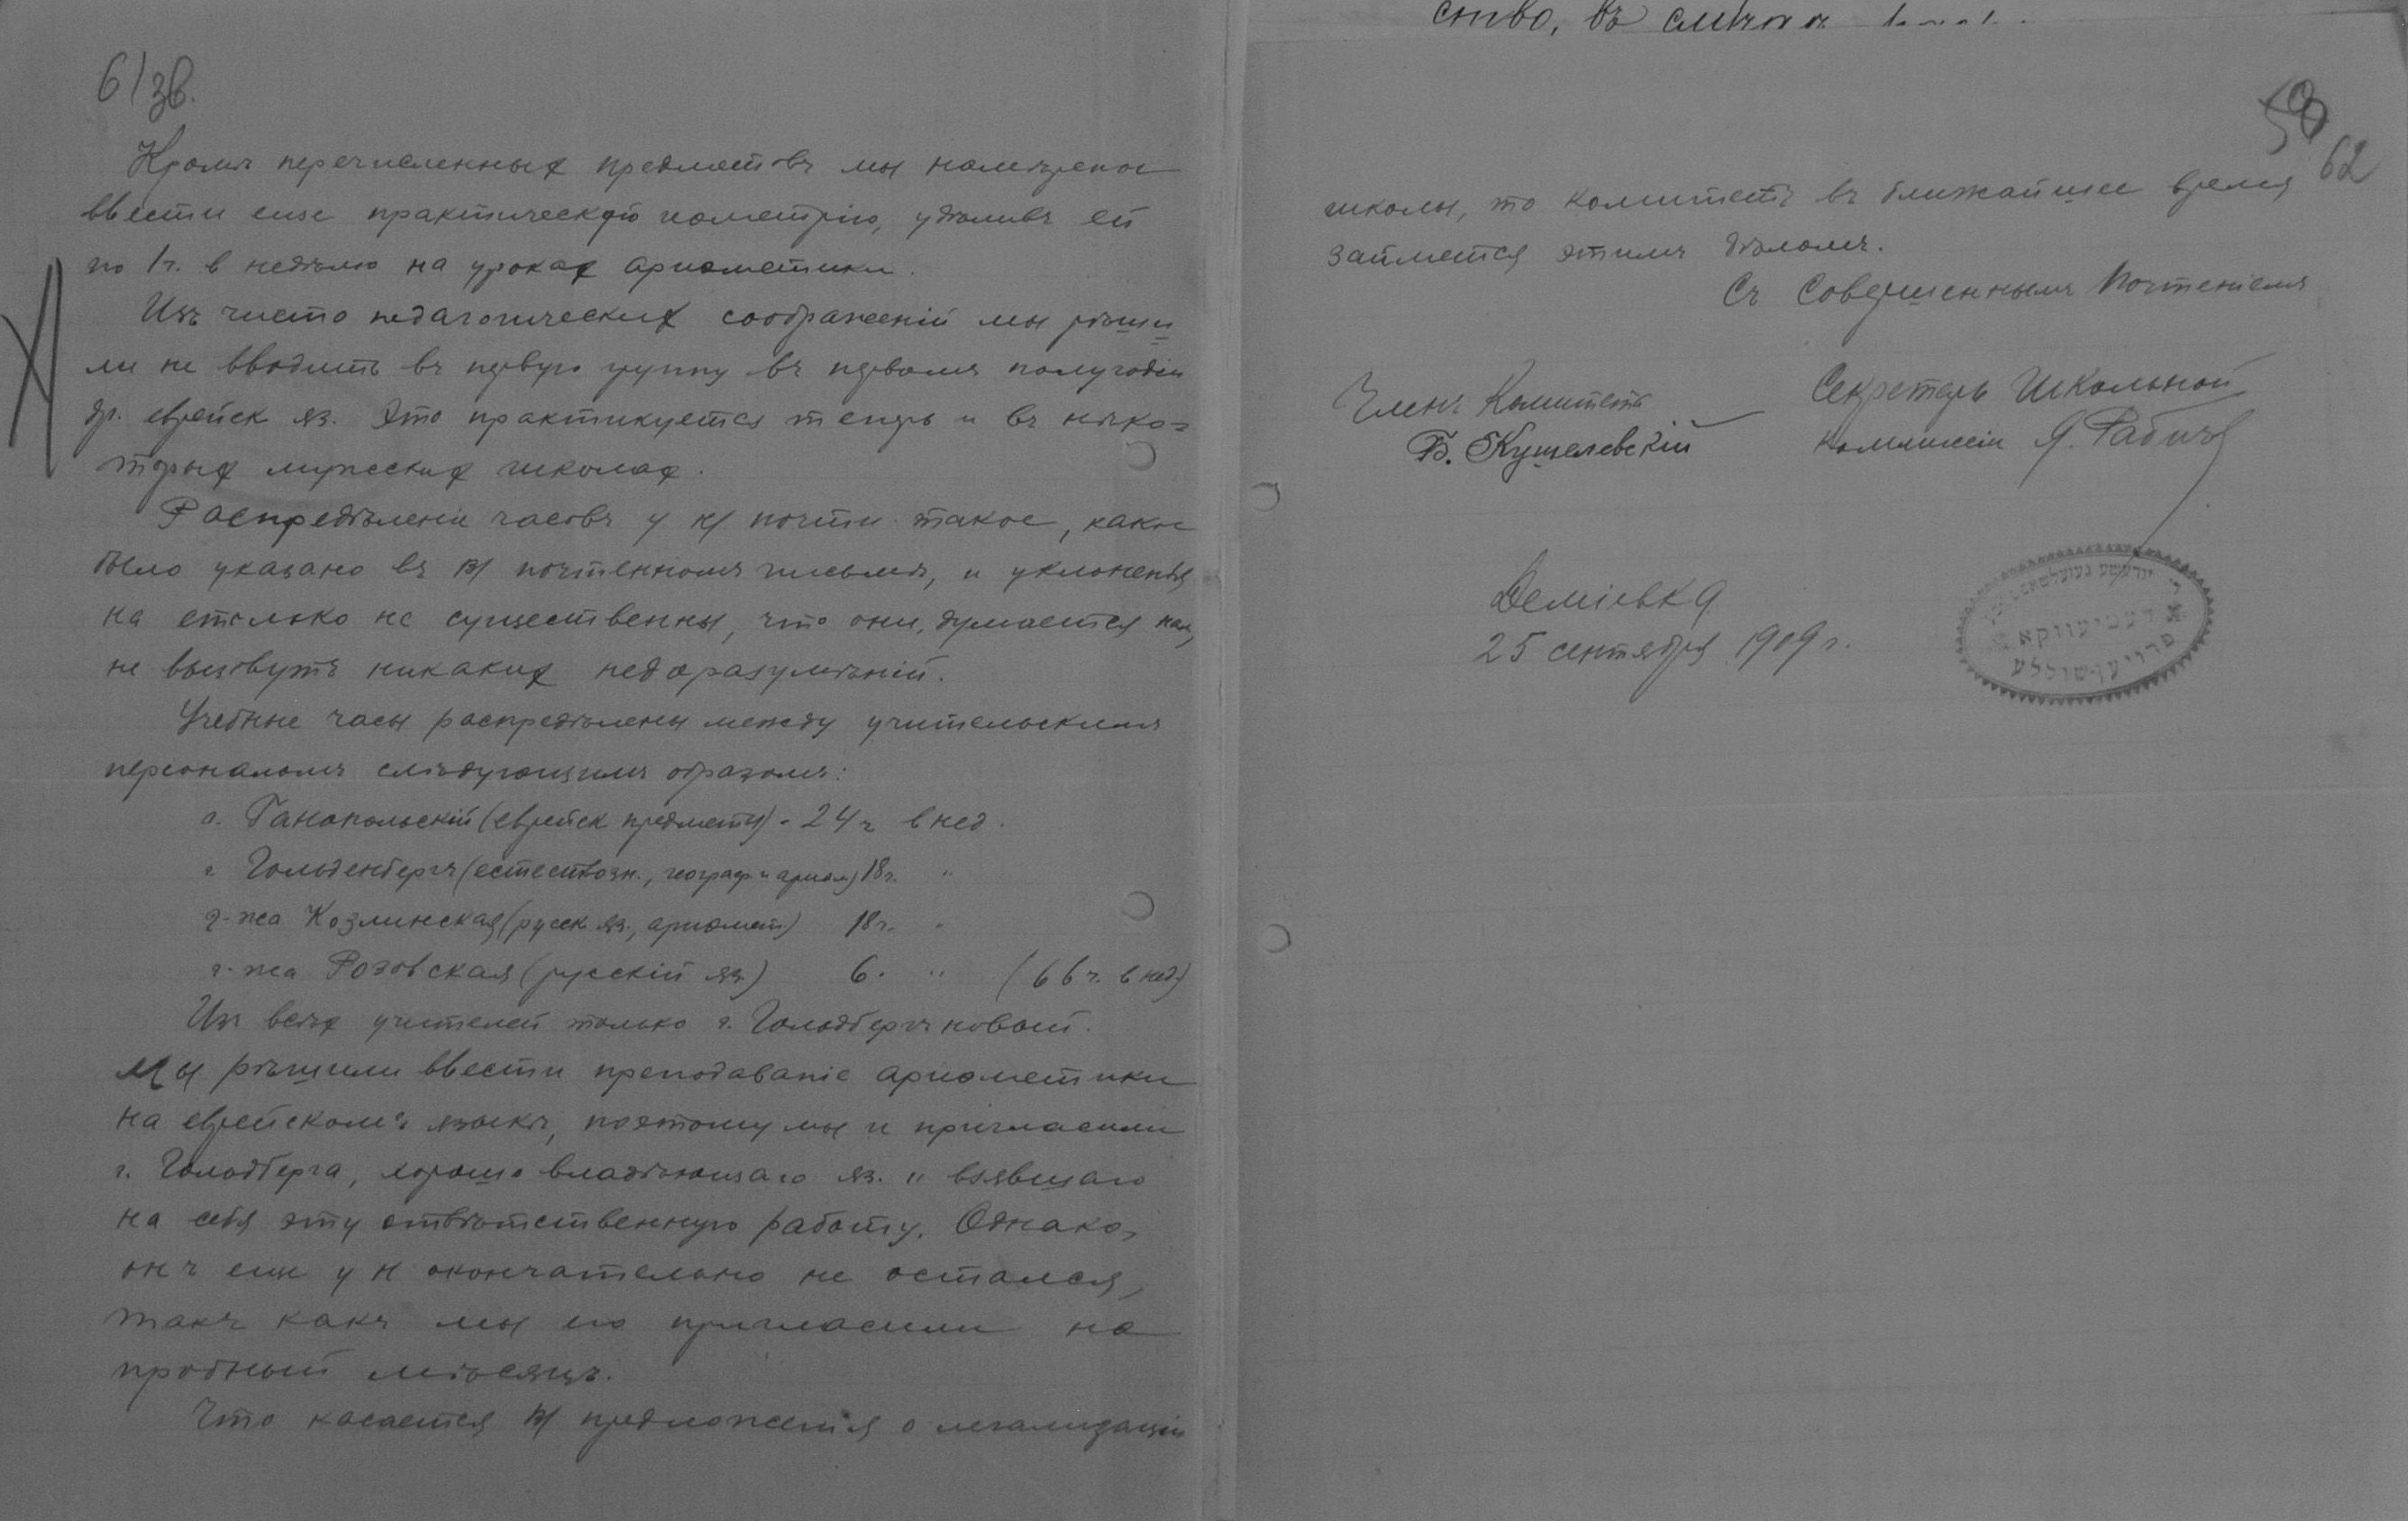 61 зв.
Кромѣ перечисленныхъ предметовъ мы намѣрены
ввести еще практическую геометрію, удѣливъ ей
по 1 ч. в недѣлю на урокахъ ариѳметики.
Изъ чисто педагогическихъ соображеній мы рѣши
ли не вводить въ первую группу въ первомъ полугодіи
др. еврейск яз. Это практикуется теперь и въ нѣко=
торыхъ мужскихъ школахъ.
Распредѣленіе часовъ у н/ почти такое, какое
было указано въ В/ почтенномъ письмѣ, и уклоненія
на столько не существенны, что они, думается нам,
не вызовутъ никакихъ недоразумѣній.
Учебные часы распредѣлены между учительскимъ
персоналомъ слѣдующимъ образомъ:
г. Ганопольскій (еврейск предметы) - 24 ч в нед.
г. Гольденбергъ (естествозн., географ. и ариѳм) 18 ч. "
г-жа Козлинская (русск. яз., ариѳмет.) 18 ч. "
г-жа Розовская (русскій яз.) 6. " (66 ч. в нед.)
Изъ всѣхъ учителей только г. Гольдбергъ новый.
Мы рѣшили ввести преподаваніе ариѳметики
на еврейскомъ языкѣ, поэтому мы и пригласили
г. Гольдберга, хорошо владѣющаго яз. и взявшаго
на себя эту отвѣтственную работу. Однако,
онъ еще у н окончательно не остался,
такъ какъ мы его пригласили на
пробный мѣсяцъ.
Что касается В/ предложенія о легализаціи
ство, въ
58
62
школы, то комитетъ въ ближайшее время
займется этимъ дѣломъ.
Съ Совершеннымъ Почтеніемъ
Членъ Комитета
Б. Кушелевскій
Секретарь Школьной
Коммиссіи Я. Рабич
Деміевка
25 сентября 1909 г.
דעמיעווקא
פרויען-שוללע